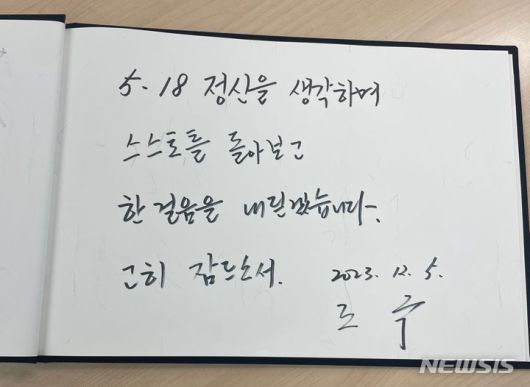 5·18 정신을 생각하며
스스로를 돌아보고
한 걸음을 내딛겠습니다.
고히 잠드소서.
2023. 12. 5.
도 우
NEWSIS